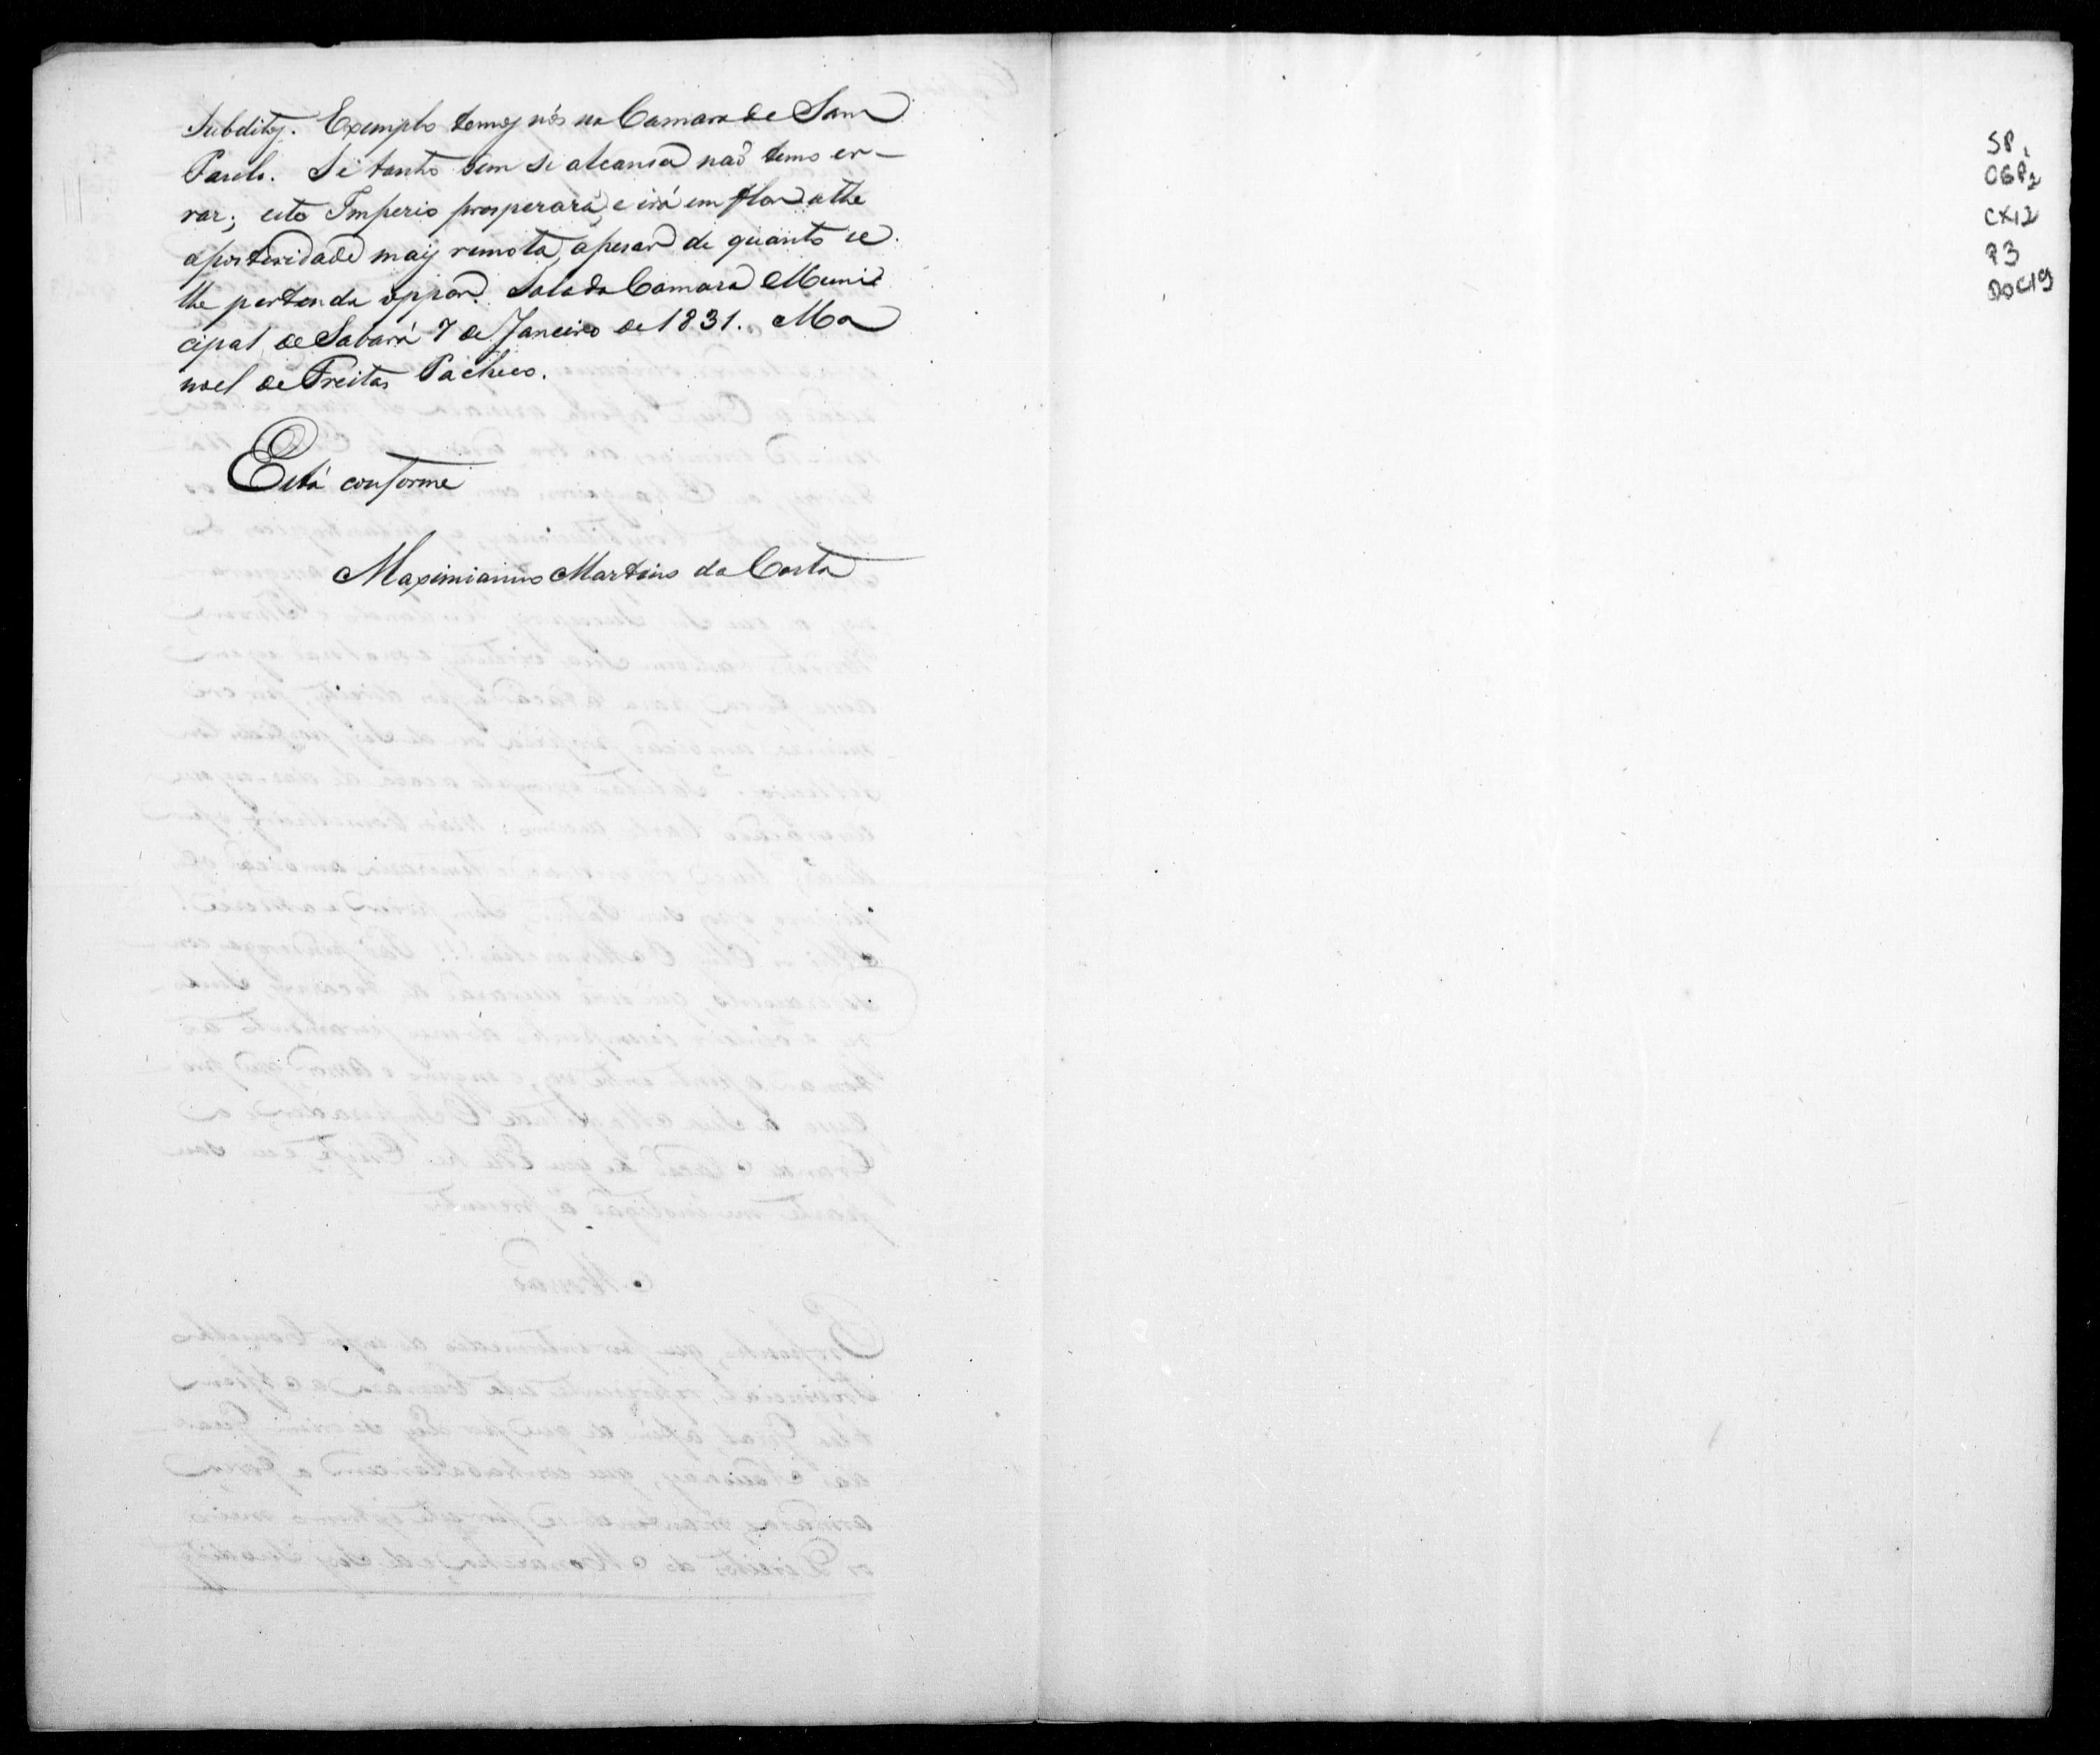 Subditos. Exemplo temos nós na Camara de Sam
Paulo. Se tanto bem se alcansa naõ temo er-
rar; este Imperio prosperará, e irá em flor athe
a posteridade mais remota, apesar de quanto se
lhe pertenda oppor. Sala da Camara Muni-
cipal de Sabará 7 de Janeiro de 1831. Ma
noel de Freitas Pacheco.
Está conforme
Maximianno Martins da Costa
SP1
CGP2
CX12
P3
DOC19